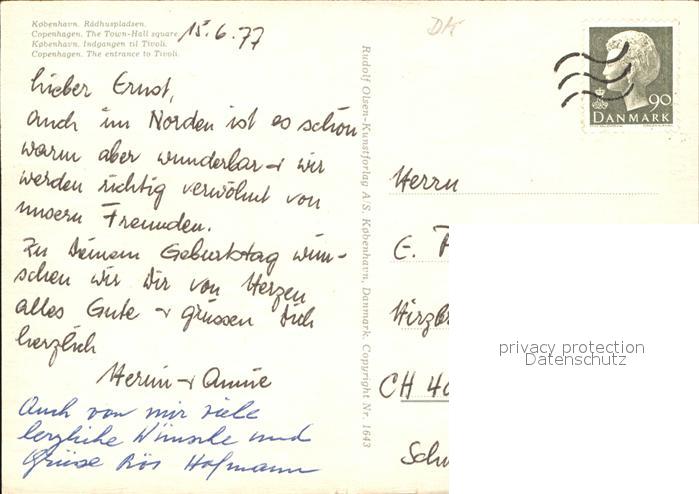 København. Rådhuspladsen.
Copenhagen. The Town-Hall square.
København. Indgangen til Tivoli.
Copenhagen. The entrance to Tivoli.
15.6.77
lieber Ernst,
auch im Norden ist es schön
warm aber wunderbar + wir
werden richtig verwöhnt von
unsern Freunden.
Zu Deinem Geburtstag wün-
schen wir Dir von Herzen
alles Gute + grüssen Dich
herzlich
+ Annie
Auch von mir viele
herzliche Wünsche und
Grüsse Hofmann
Rudolf Olsen-Kunstforlag A/S. København, Danmark. Copyright Nr. 1643
DK
90
DANMARK
Herrn
E.
Hirzbr
CH 40
Schw
privacy protection
Datenschutz